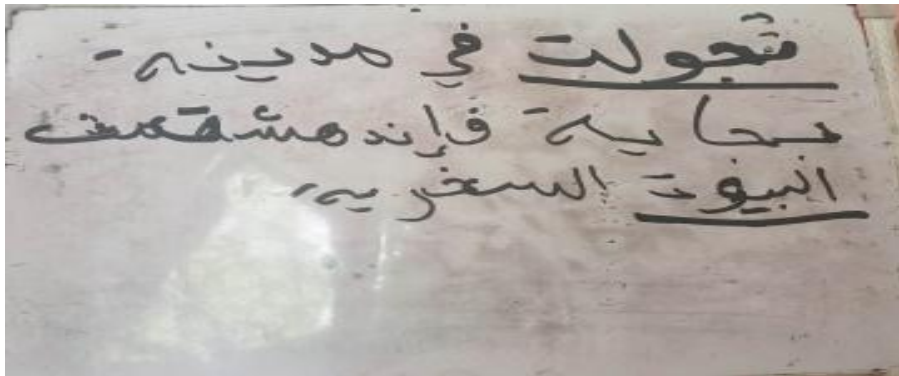 تجولت في مدينة
سحابية فإندهشة من
البيوت السخرية